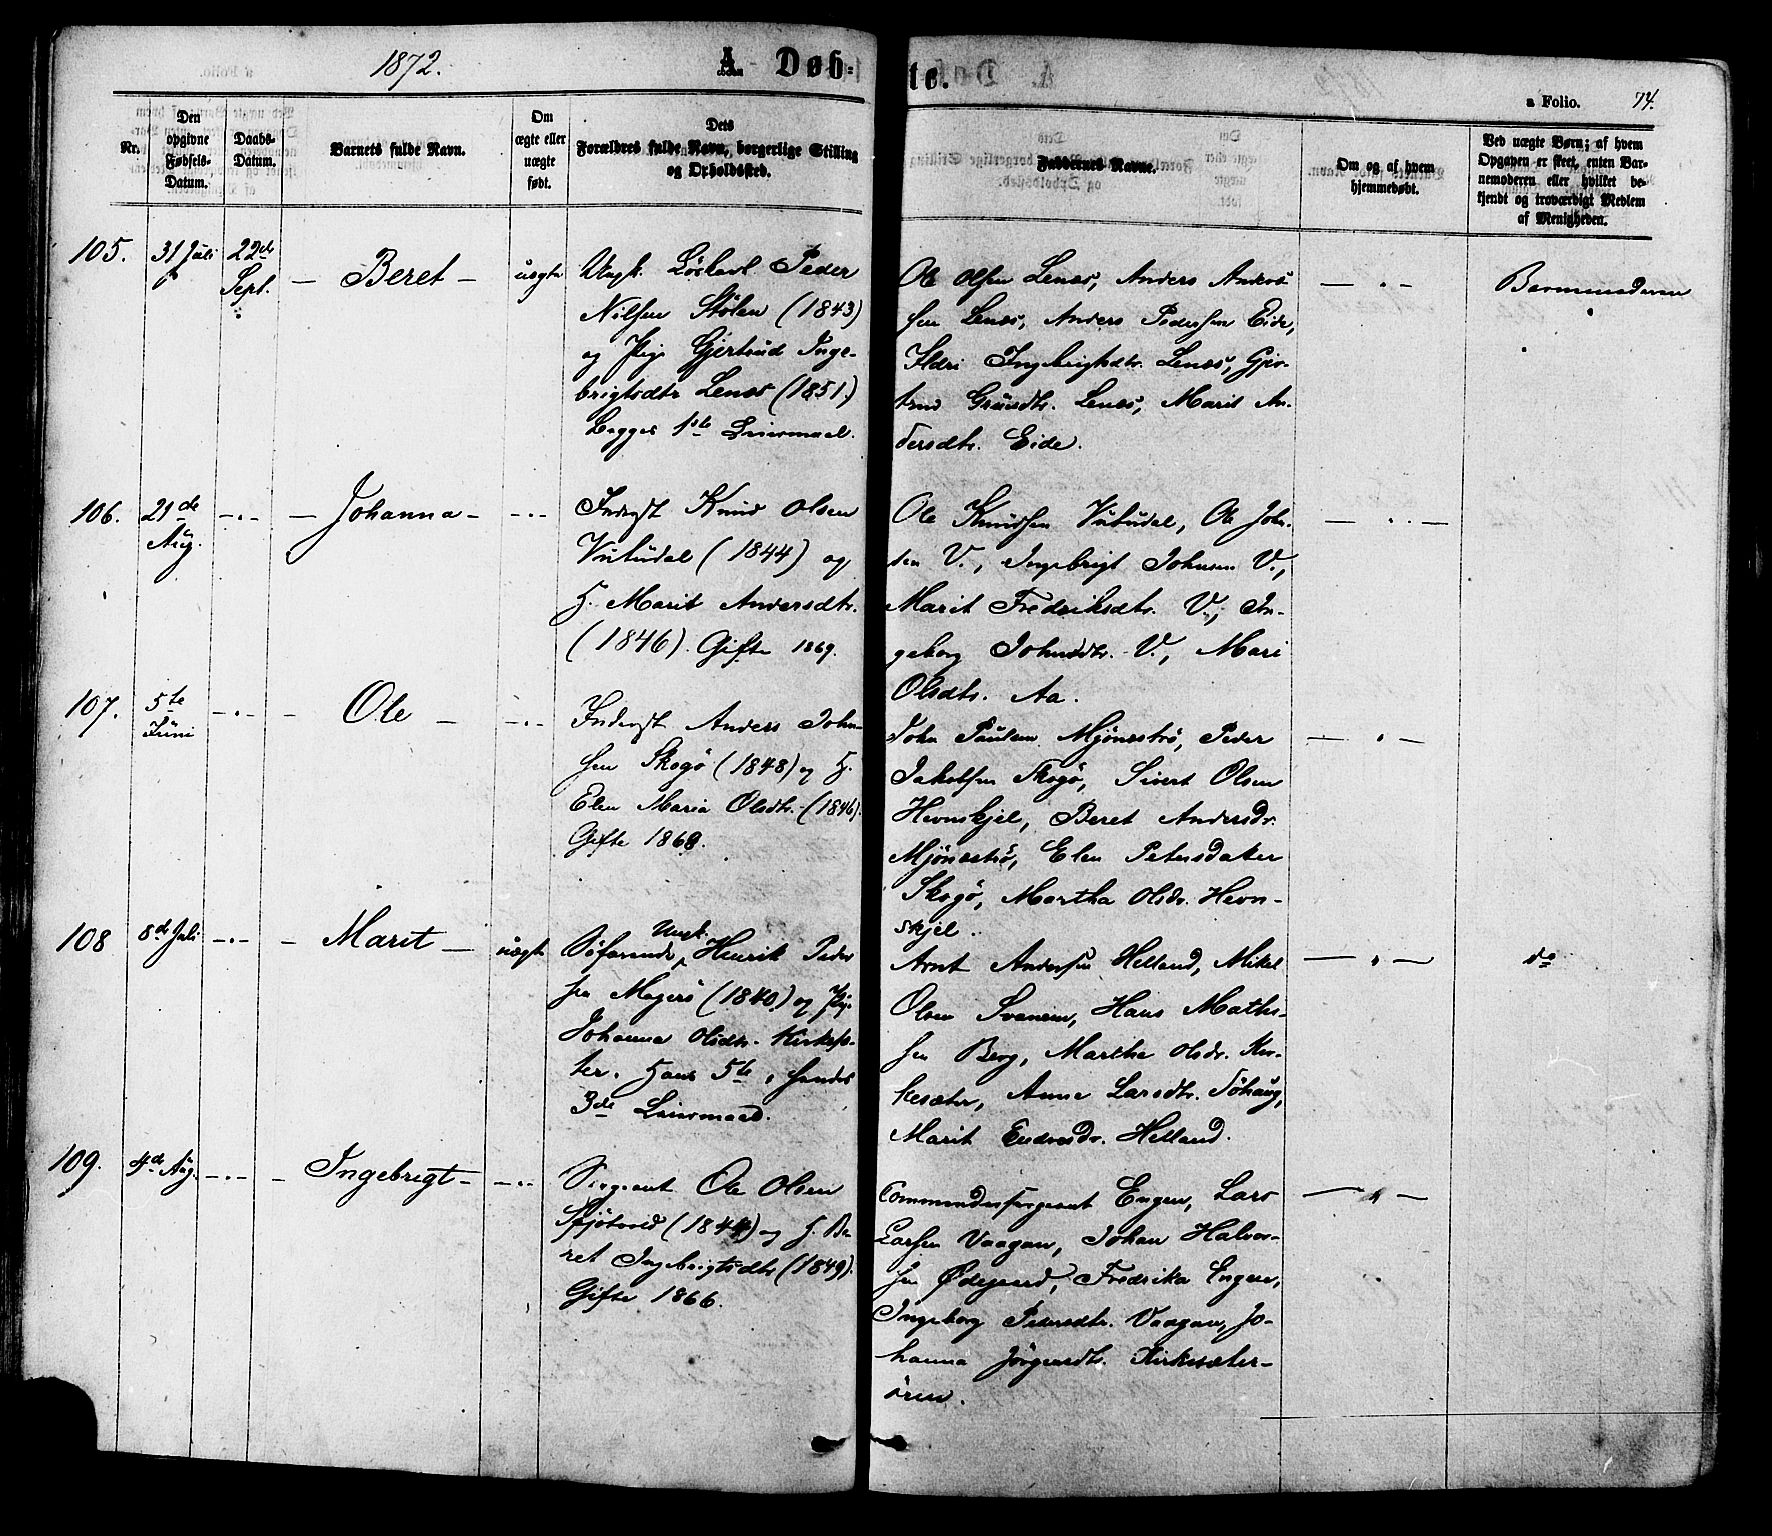 1872.
A Døb=
te.
a Folio. 74.
Nr.
Den
opgivne
Fødsels-
Datum.
Daabs-
Datum.
Barnets fulde Navn.
Om
ægte eller
uægte
født.
Dets
Forældres fulde Navn, borgerlige Stilling
og Opholdssted.
Faddernes Navne.
Om og af hvem
hjemmedøbt.
Ved uægte Børn; af hvem
Opgaven er skeet, enten Bar-
nemoderen eller hvilket be-
kjendt og troværdigt Medlem
af Menigheden.
105.
31 Juli
22de
Sept.
Beret
uægte
Ungk. Peder
Nilsen Stølen (1843)
og Pige Gjertrud Inge-
brigtsdtr Lenes (1851.)
Begges 1ste Leiermaal.
Ole Olsen Lenes, Anders Anders-
sen Lenes, Anders Pedersen Eide,
Ildri Ingebrigtsdtr. Lenes, Gjer-
trud Lenes, Marit An-
dersdtr. Eide.
Barnemoderen
106.
21de
Aug.
- " -
Johanna
- " -
Inderst Knud Olsen
Vutudal (1844) og
H. Marit Andersdtr.
(1846). Gifte 1869.
Ole Knudsen Vutudal, Ole John-
sen V., Ingebrigt Johnsen V.,
Marit Fredriksdtr. V., In-
geborg Johnsdtr. V., Mari
Olsdtr. Aa.
107.
5te
Juni
- " -
Ole
- " -
Inderst Anders John-
sen Skogø (1848) og H.
Elen Maria Olsdtr. (1846).
Gifte 1868.
John Paulsen Mjønestrø, Peder
Jakobsen Skogø, Sivert Olsen
Hevnskjel, Beret Andersdr.
Mjønestrø, Elen Petersdatter
Skogø, Martha Olsdr. Hevn-
skjel.
108
8de Juli
- " -
Marit
uægte
Ungk.
Søfarende Henrik Peder
sen Magerø (1840) og Pige
Johanna Olsdtr. Kirkesæ-
ter. Hans 5te, hendes
3de Leiermaal.
Arnt Andersen Helland, Mikel
Olsen Svanem, Hans Mathi-
sen Berg, Martha Olsdr. Kir-
kesæter, Anne Larsdtr. Føhaug,
Marit Endresdr. Helland.
do
109.
4de Aug.
- " -
Ingebrigt
- " -
Sergeant Ole Olsen
(1844) og H. Be-
ret Ingebrigtsdtr (1849).
Gifte 1866.
Commandersergeant Engen, Lars
Larsen Vaagan, Johan Halvor-
sen Ødegaard, Fredrika Engen,
Ingeborg Pedersdtr. Vaagan, Jo-
hanna Jørgensdtr. Kirkesæter-
øren.